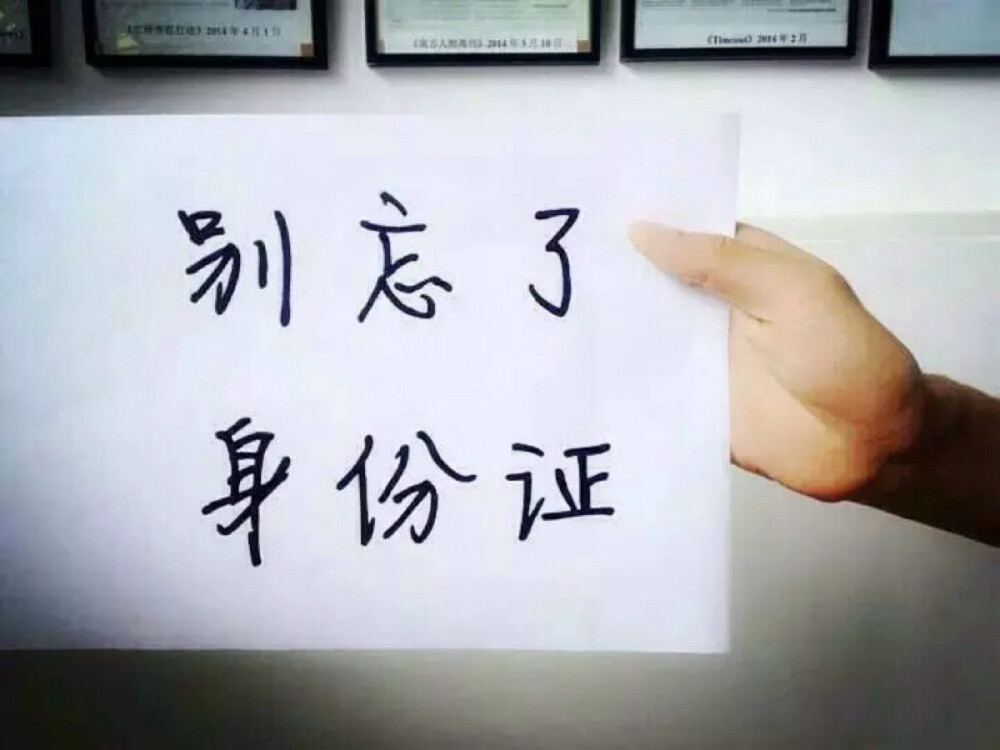 2014年4月1日
《南方人物周刊》2014年3月10日
《Timeout》2014年2月
别忘了
身份证